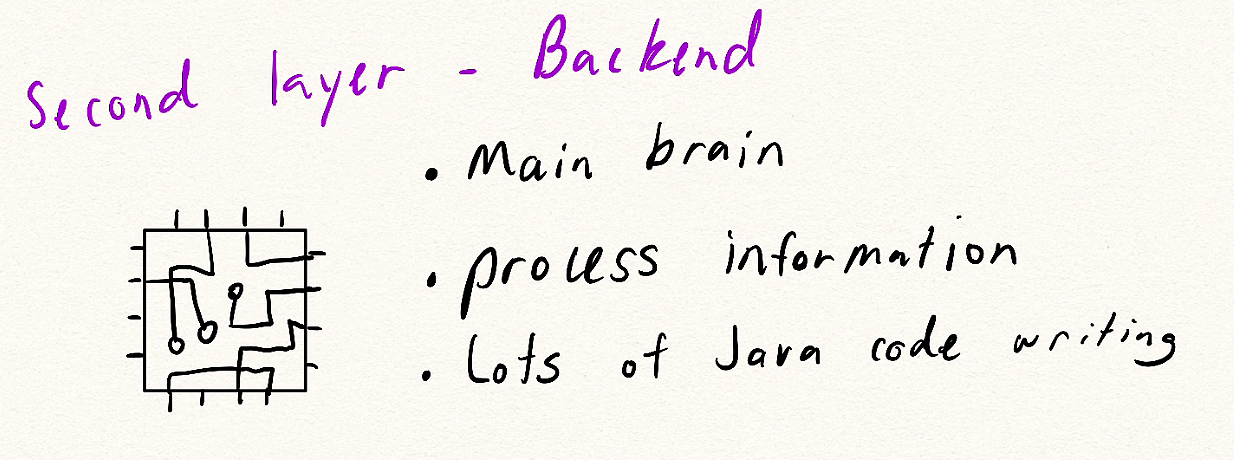 Second layer - Backend
• Main brain
• process information
• Lots of Java code writing